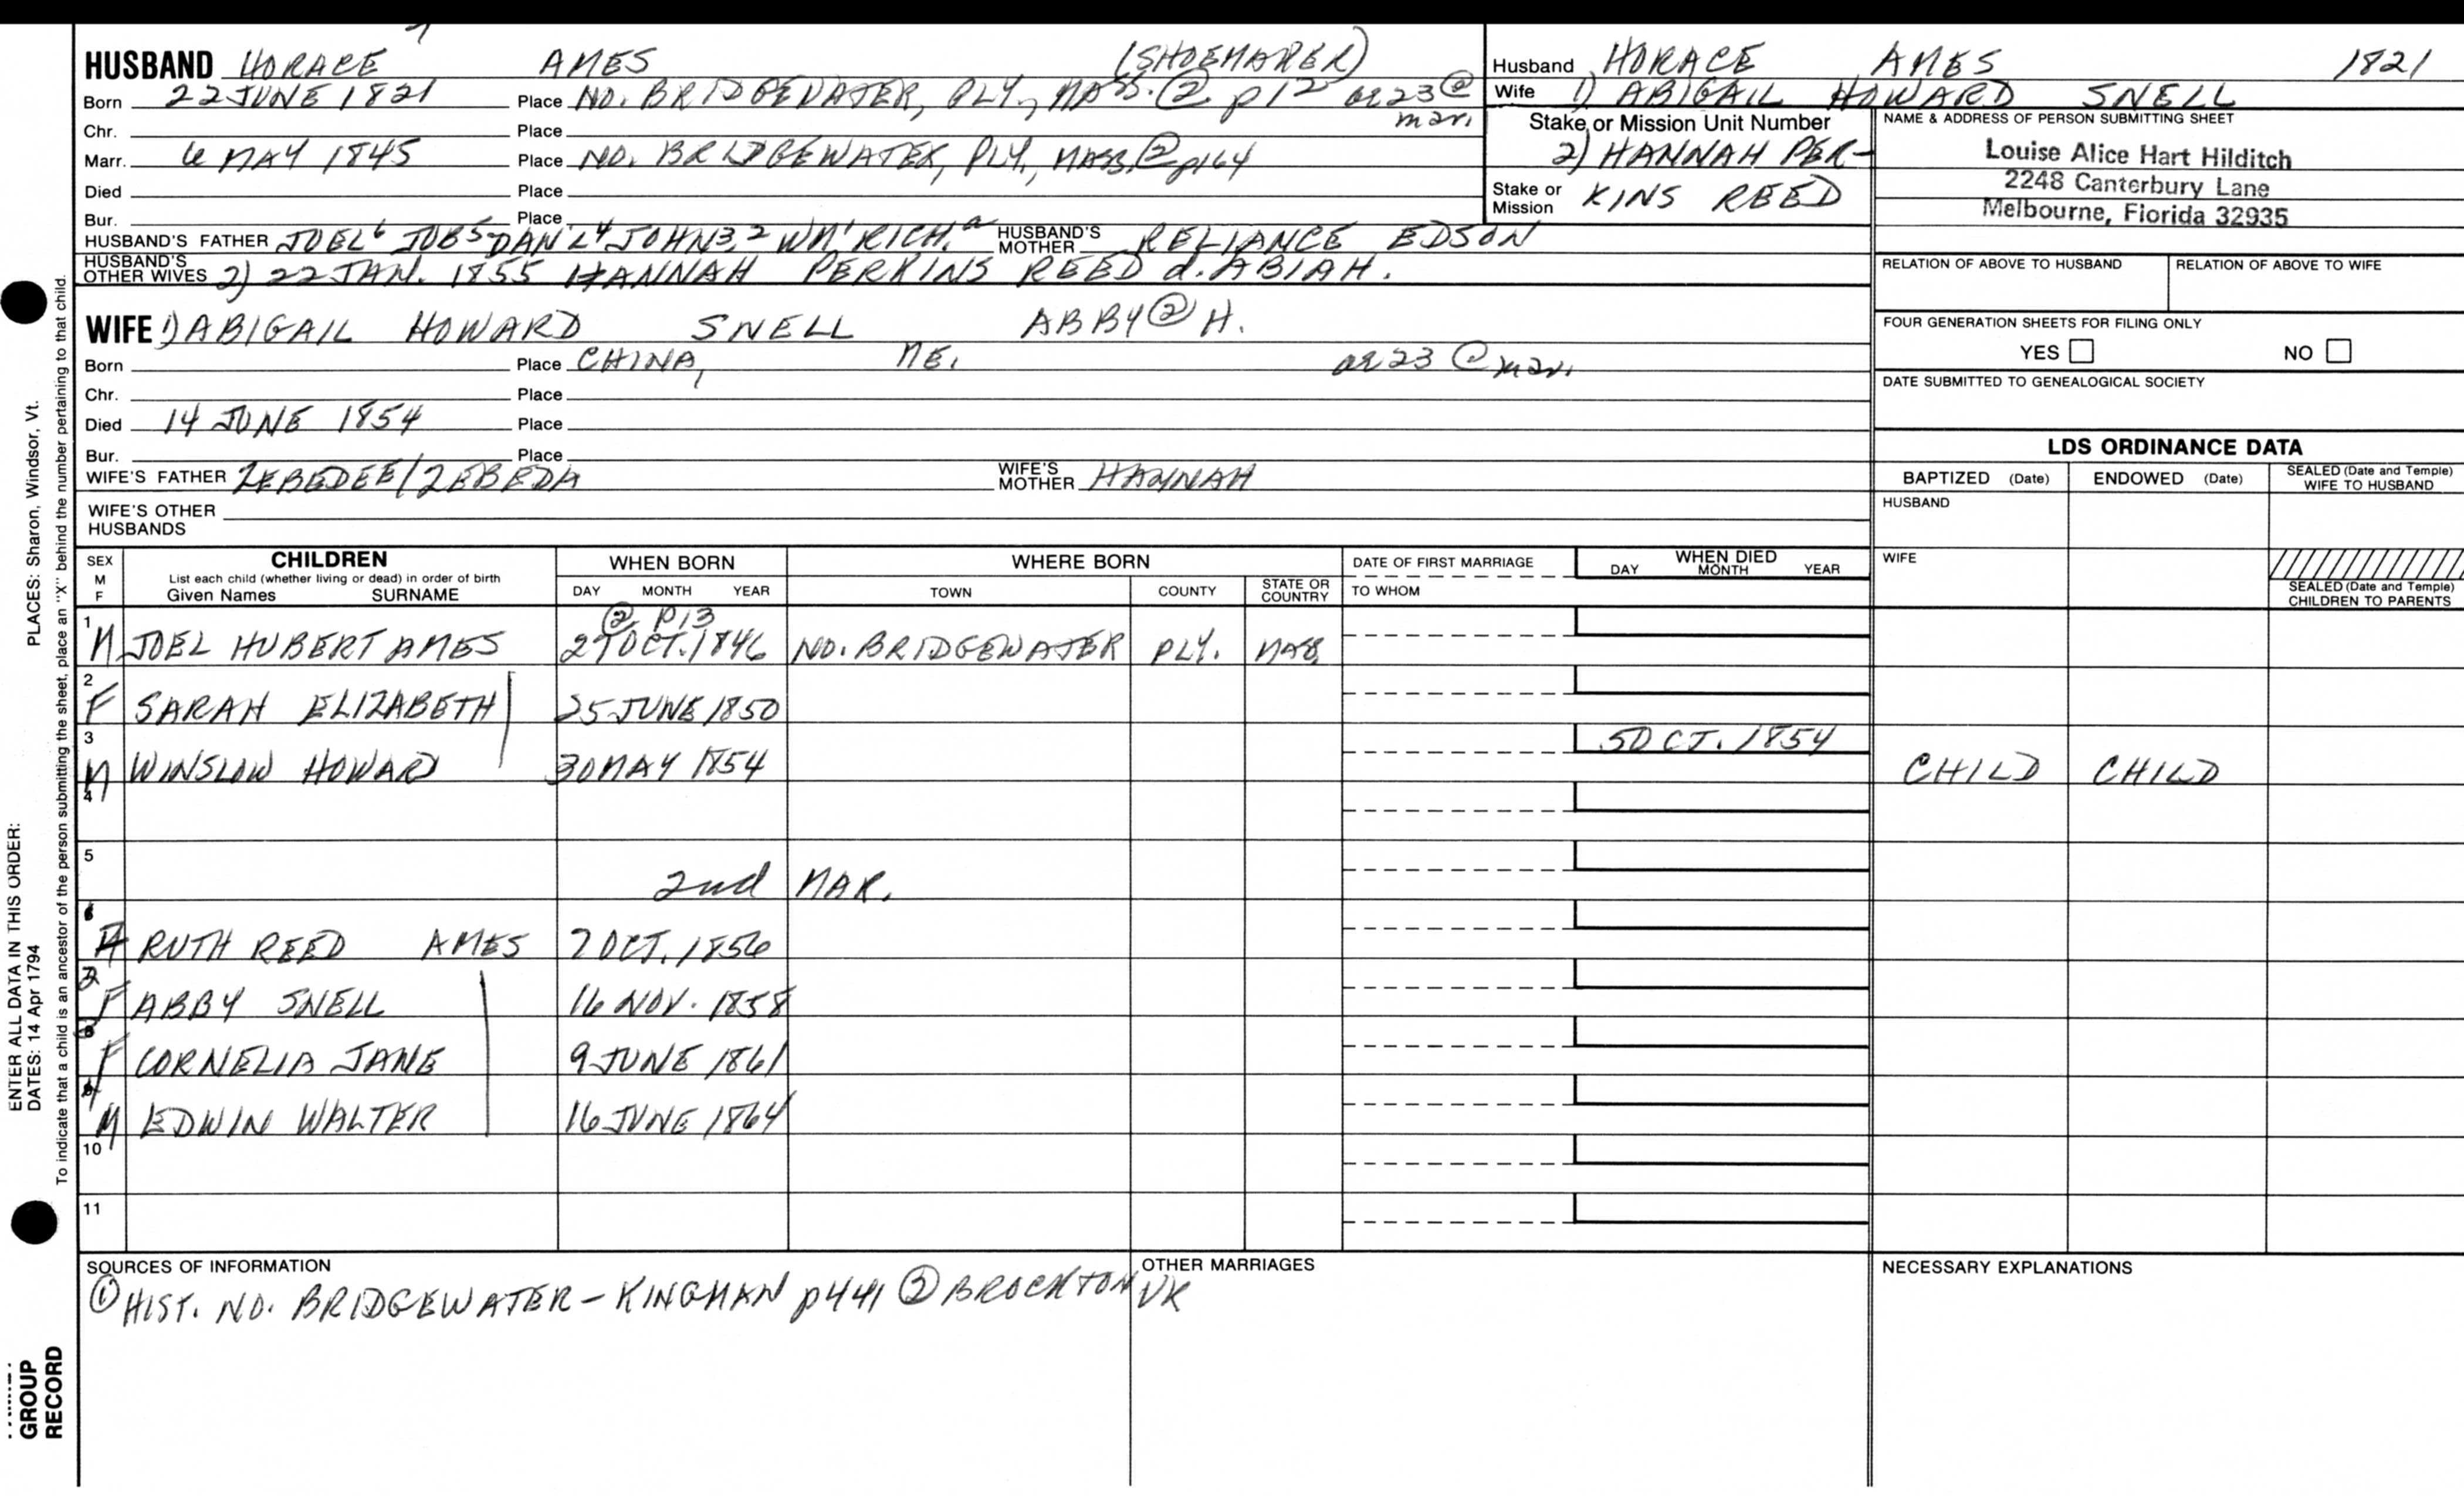 HUSBAND HORACE AMES (SHOEMAKER)
Born 22 JUNE 1821 Place NO. BRIDGEWATER, PLY., MASS. ② p12 ae 23 @ mar.
Chr. Place
Marr. 6 MAY 1845 Place NO. BRIDGEWATER, PLY., MASS. ② p164
Died Place
Bur. Place
HUSBAND'S FATHER JOEL⁶ JOB⁵ DAN'L⁴ JOHN³,² WM¹ RICH.ᵃ HUSBAND'S MOTHER RELIANCE EDSON
HUSBAND'S OTHER WIVES 2) 22 JAN. 1855 HANNAH PERKINS REED d. ABIAH.
Husband HORACE AMES 1821
Wife 1) ABIGAIL HOWARD SNELL
Stake or Mission Unit Number
2) HANNAH PER-
Stake or Mission KINS REED
NAME & ADDRESS OF PERSON SUBMITTING SHEET
Louise Alice Hart Hilditch
2248 Canterbury Lane
Melbourne, Florida 32935
RELATION OF ABOVE TO HUSBAND RELATION OF ABOVE TO WIFE
WIFE 1) ABIGAIL HOWARD SNELL ABBY ② H.
Born Place CHINA, ME. ae 23 @ mar.
Chr. Place
Died 14 JUNE 1854 Place
Bur. Place
WIFE'S FATHER ZEBEDEE/ZEBEDA WIFE'S MOTHER HANNAH
WIFE'S OTHER HUSBANDS
FOUR GENERATION SHEETS FOR FILING ONLY
YES NO
DATE SUBMITTED TO GENEALOGICAL SOCIETY
LDS ORDINANCE DATA
BAPTIZED (Date) ENDOWED (Date) SEALED (Date and Temple) WIFE TO HUSBAND
HUSBAND
WIFE
SEALED (Date and Temple) CHILDREN TO PARENTS
SEX M F CHILDREN WHEN BORN WHERE BORN DATE OF FIRST MARRIAGE WHEN DIED
List each child (whether living or dead) in order of birth
Given Names SURNAME DAY MONTH YEAR TOWN COUNTY STATE OR COUNTRY TO WHOM DAY MONTH YEAR
② P13
1 M JOEL HUBERT AMES 29 OCT. 1846 NO. BRIDGEWATER PLY. MASS
2 F SARAH ELIZABETH 25 JUNE 1850
3 M WINSLOW HOWARD 30 MAY 1854 5 OCT. 1854 CHILD CHILD
4
5 2nd MAR.
F RUTH REED AMES 7 OCT. 1856
2 F ABBY SNELL 16 NOV. 1858
3 F CORNELIA JANE 9 JUNE 1861
4 M EDWIN WALTER 16 JUNE 1864
10
11
SOURCES OF INFORMATION
① HIST. NO. BRIDGEWATER - KINGMAN p441 ② BROCKTON VR
OTHER MARRIAGES
NECESSARY EXPLANATIONS
ENTER ALL DATA IN THIS ORDER:
DATES: 14 Apr 1794 PLACES: Sharon, Windsor, Vt.
To indicate that a child is an ancestor of the person submitting the sheet, place an "X" behind the number pertaining to that child.
GROUP
RECORD